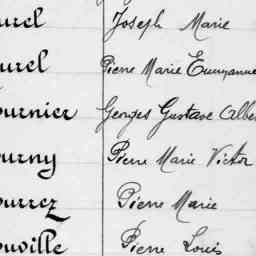 urel Joseph Marie
urel Pierre Marie Emmanue
urnier Georges Gustave Albe
urny Pierre Marie Victor
urrez Pierre Marie
uville Pierre Louis